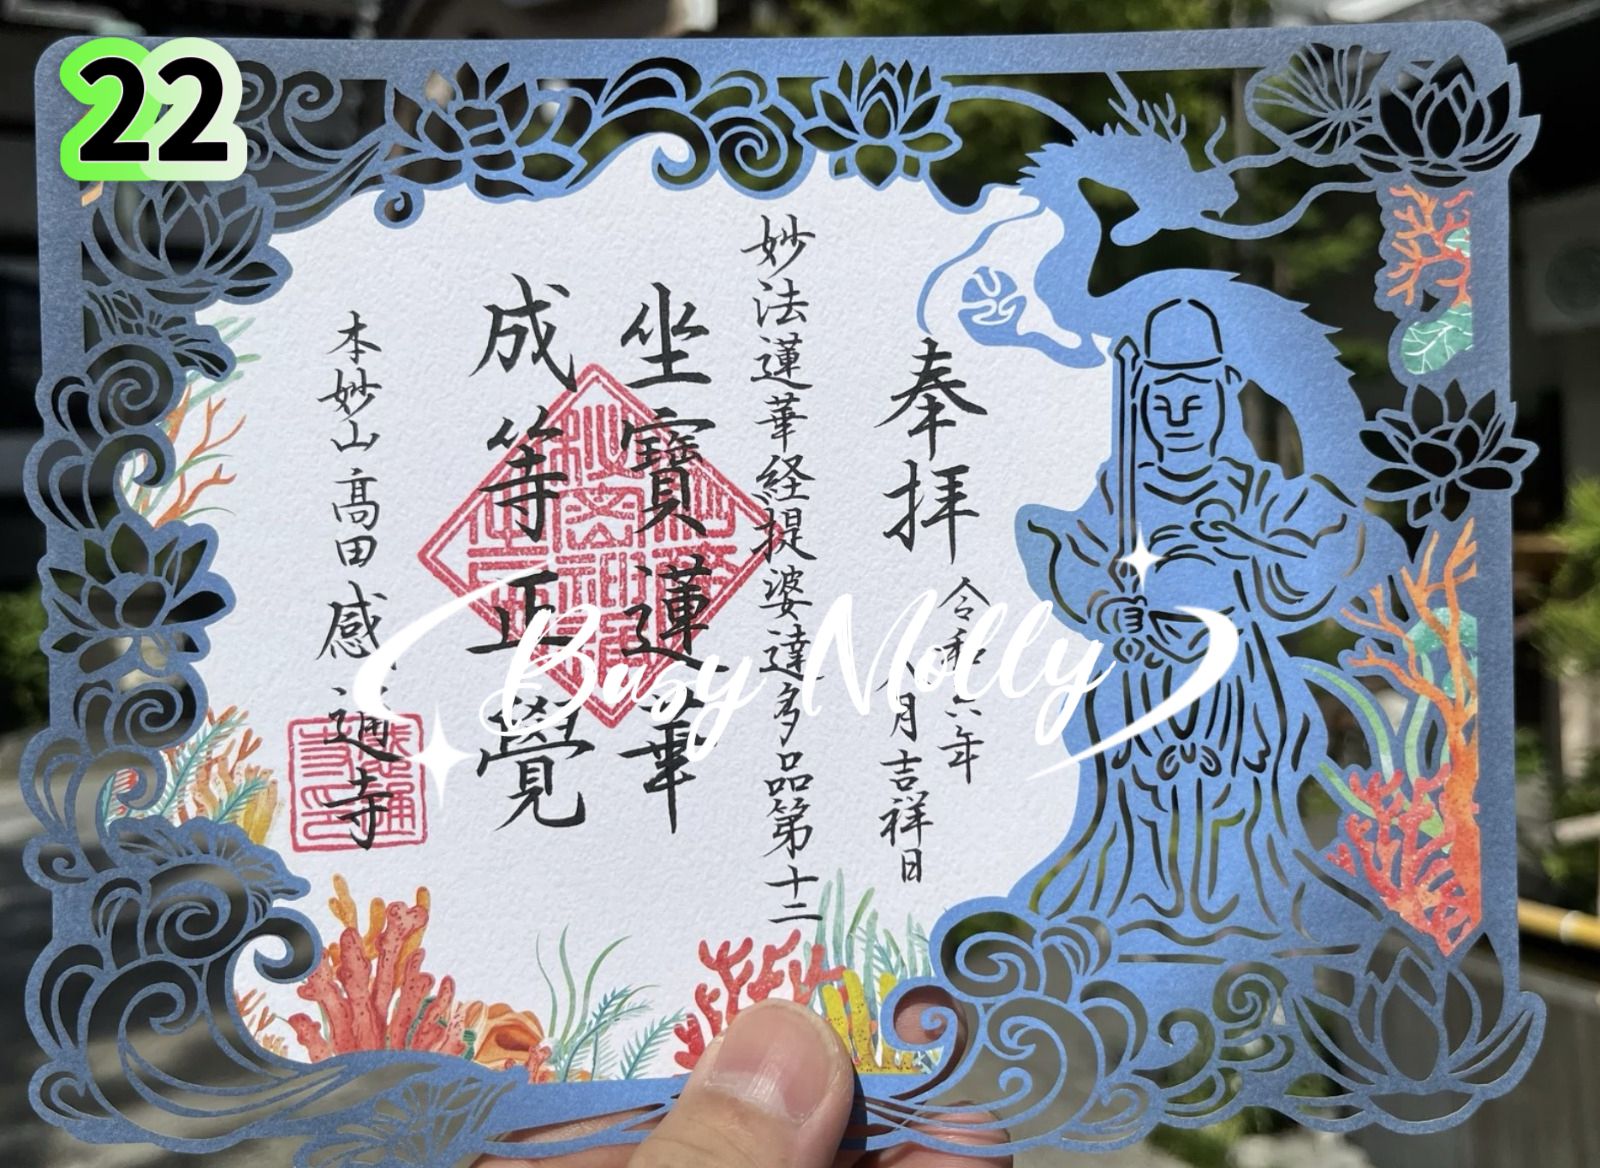 22
奉拝
令和六年
八月吉祥日
妙法蓮華経提婆達多品第十二
坐寶蓮華
成等正覺
本妙山高田感通寺
感通
寺印
Busy Molly